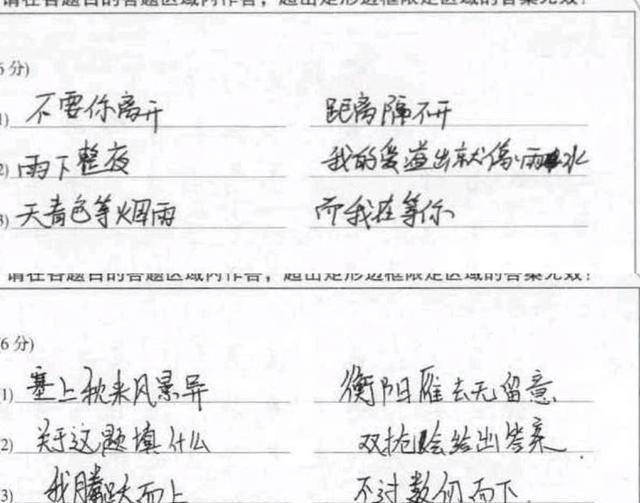 请在各题目的答题区域内作答，超出矩形边框限定区域的答案无效！
6分)
1) 不要你离开 距离隔不开
2) 雨下整夜 我的爱溢出就像雨水
3) 天青色等烟雨 而我在等你
请在各题目的答题区域内作答，超出矩形边框限定区域的答案无效！
6分)
1) 塞上秋来风景异 衡阳雁去无留意
2) 关于这题填什么 双抢脸给出答案
3) 我腾跃而上 不过数仞而下